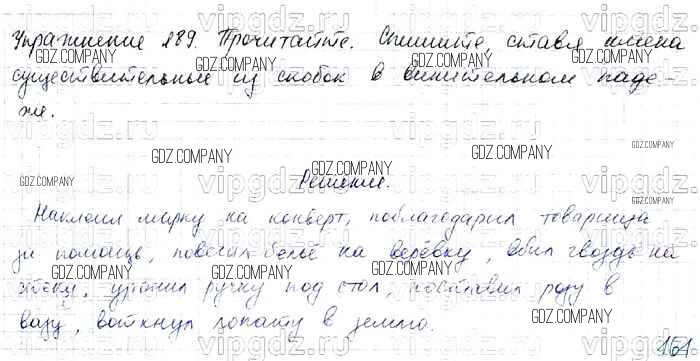 Упражнение 189. Прочитайте. Спишите, ставя имена
существительные из скобок в винительном паде-
же.
Решение.
Наклеил марку на конверт, поблагодарил товарища
за помощь, повесил бельё на верёвку, вбил гвоздь на
стену, уронил ручку под стол, поставил розу в
вазу, воткнул лопату в землю.
161